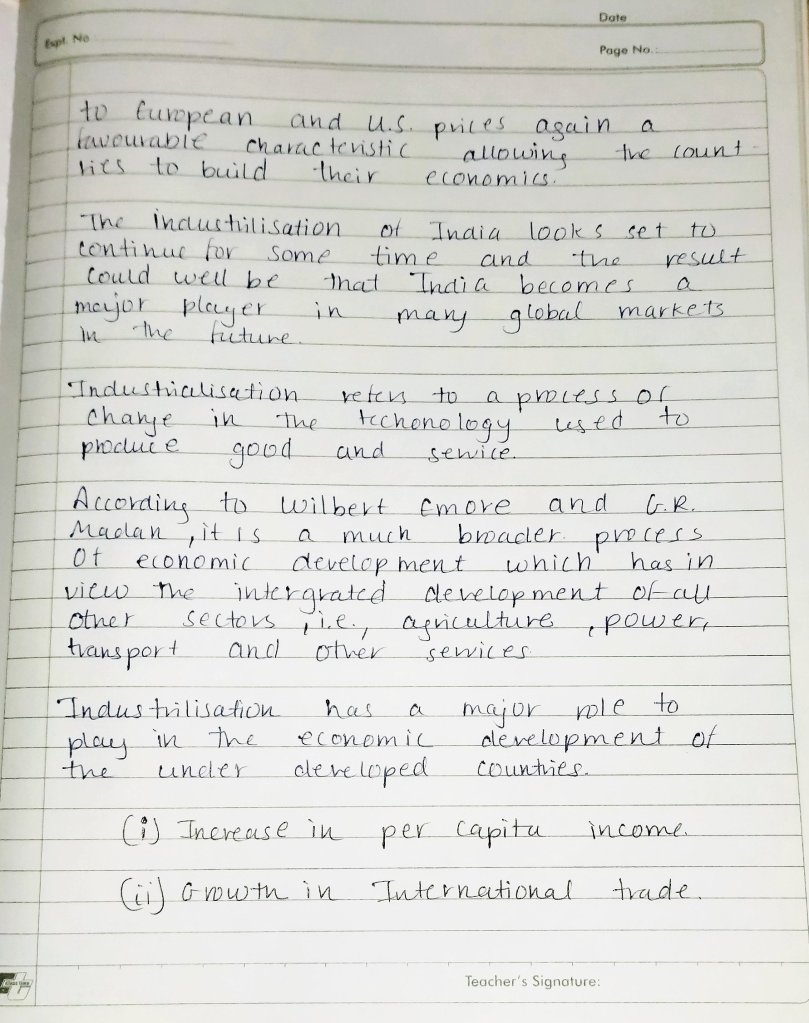 Date
Expt. No
Page No.:
to European and U.S. prices again a
favourable characteristic allowing the count
ries to build their economics.
The industrilisation of India looks set to
continue for some time and the result
could well be that India becomes a
major player in many global markets
in the future.
Industrialisation refers to a process of
change in the techonology used to
produce good and service.
According to Wilbert Emore and G.R.
Madan, it is a much broader process
of economic development which has in
view the intergrated development of all
other sectors, i.e., agriculture, power,
transport and other services.
Industrilisation has a major role to
play in the economic development of
the under developed countries.
(i) Increase in per capita income.
(ii) Growth in International trade.
Teacher's Signature: